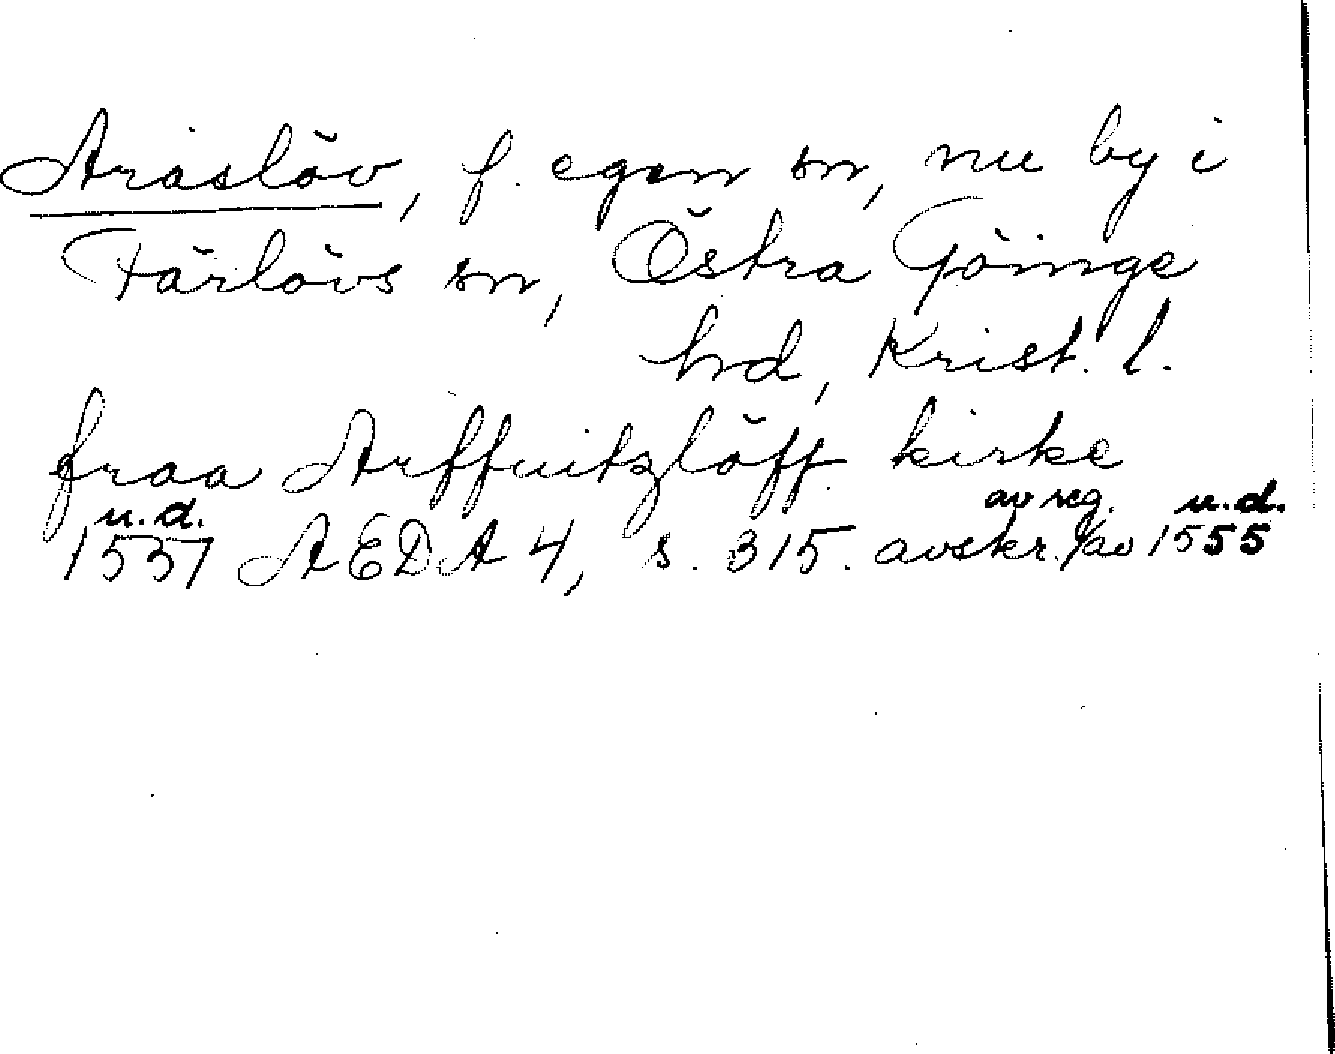 Araslöv, f. egen sn, nu by i
Färlövs sn, Östra Göinge
hd, Krist. l.
fraa Arffuitzlöff kirke
u.d. av reg. u.d.
1537 AEDA 4, s. 315. avskr. av 1555